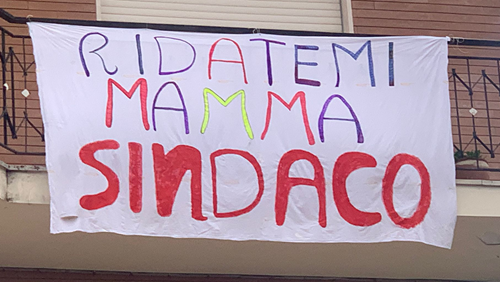 RIDATEMI
MAMMA
SINDACO